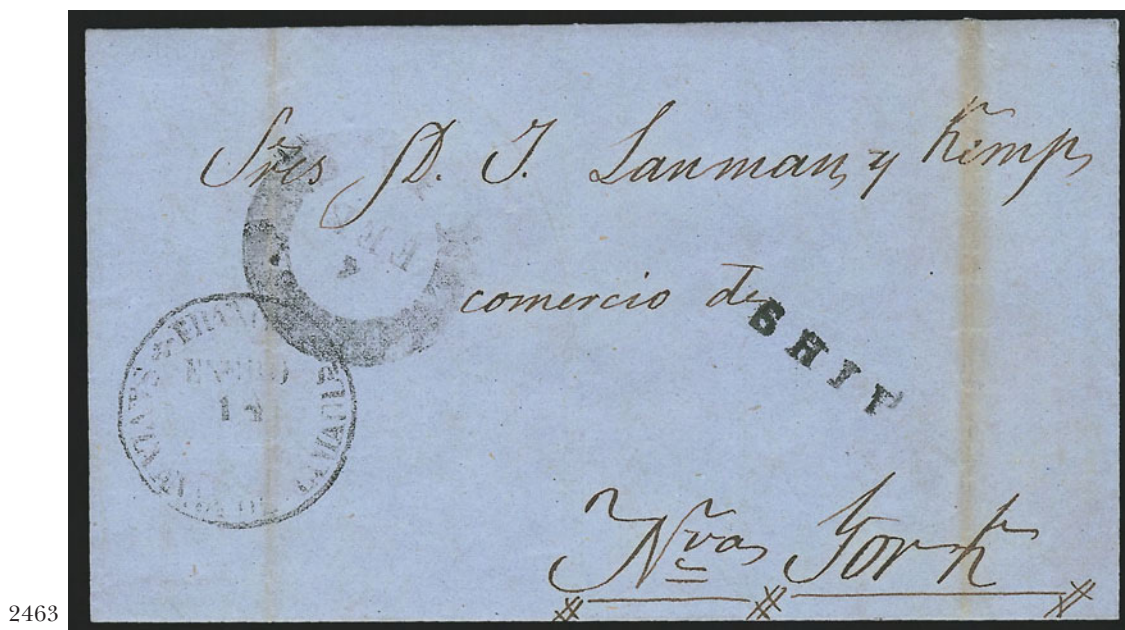 Sres D. J. Lanman y Kemp
comercio de
SHIP
Nva York
FRANCO
ENERO
2463